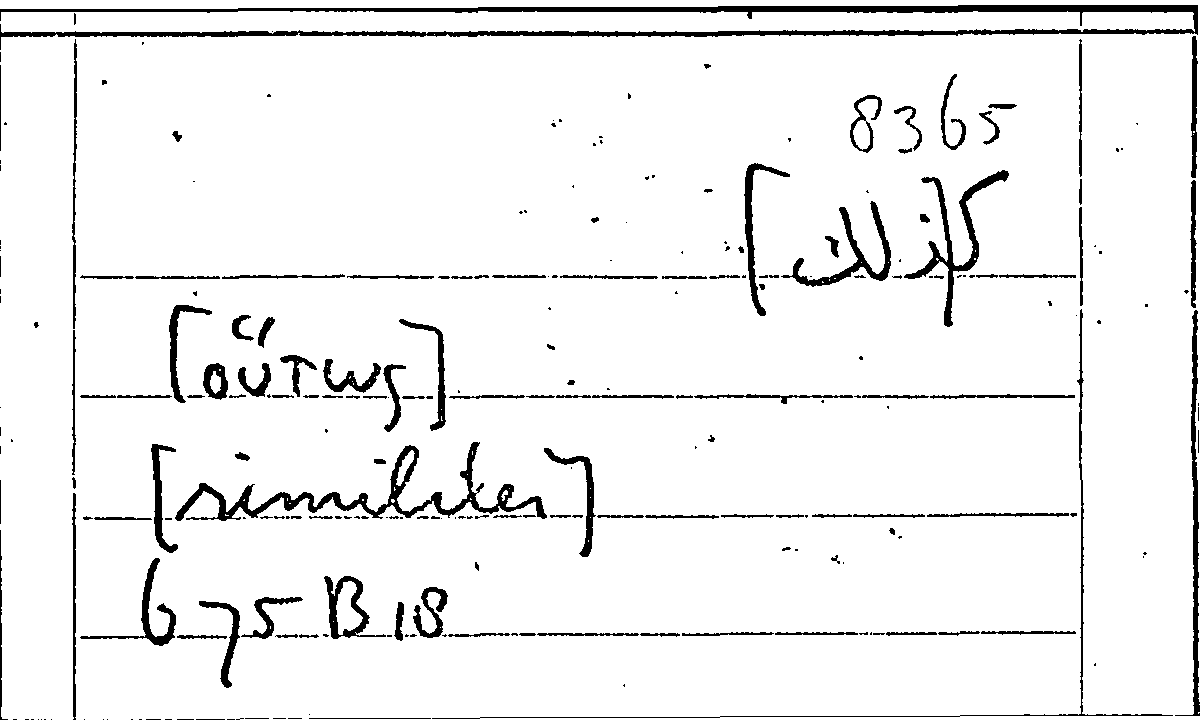 8365
[كذلك]
[οὕτως]
[similiter]
675 B 18